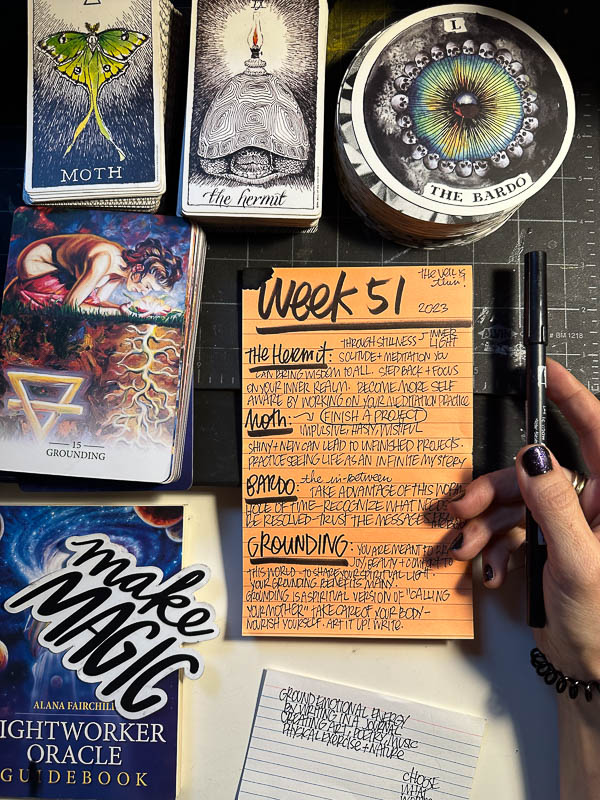 MOTH
IX
the hermit
I
THE BARDO
15
GROUNDING
the veil is
thin!
Week 51
2023
the Hermit: THROUGH STILLNESS - INNER LIGHT
SOLITUDE + MEDITATION YOU
CAN BRING WISDOM TO ALL. STEP BACK + FOCUS
ON YOUR INNER REALM. BECOME MORE SELF
AWARE BY WORKING ON YOUR MEDITATION PRACTICE
Moth: (FINISH A PROJECT)
IMPULSIVE, HASTY, WISTFUL
SHINY + NEW CAN LEAD TO UNFINISHED PROJECTS.
PRACTICE SEEING LIFE AS AN INFINITE MYSTERY
BARDO: the in-between
TAKE ADVANTAGE OF THIS WORM
HOLE OF TIME - RECOGNIZE WHAT NEEDS
BE RESOLVED - TRUST THE MESSAGES
GROUNDING: YOU ARE MEANT TO
JOY, BEAUTY + COMFORT TO
THIS WORLD - TO SHARE YOUR SPIRITUAL LIGHT.
YOUR GROUNDING BENEFITS MANY.
GROUNDING IS A SPIRITUAL VERSION OF "CALLING
YOUR MOTHER" TAKE CARE OF YOUR BODY -
NOURISH YOURSELF. ART IT UP! WRITE.
make
MAGIC
ALANA FAIRCHIL
IGHTWORKER
ORACLE
GUIDEBOOK
GROUND EMOTIONAL ENERGY
BY WRITING IN A JOURNAL
CREATING ART + POETRY, MUSIC
PHYSICAL EXERCISE + NATURE
CHOOSE
WHAT